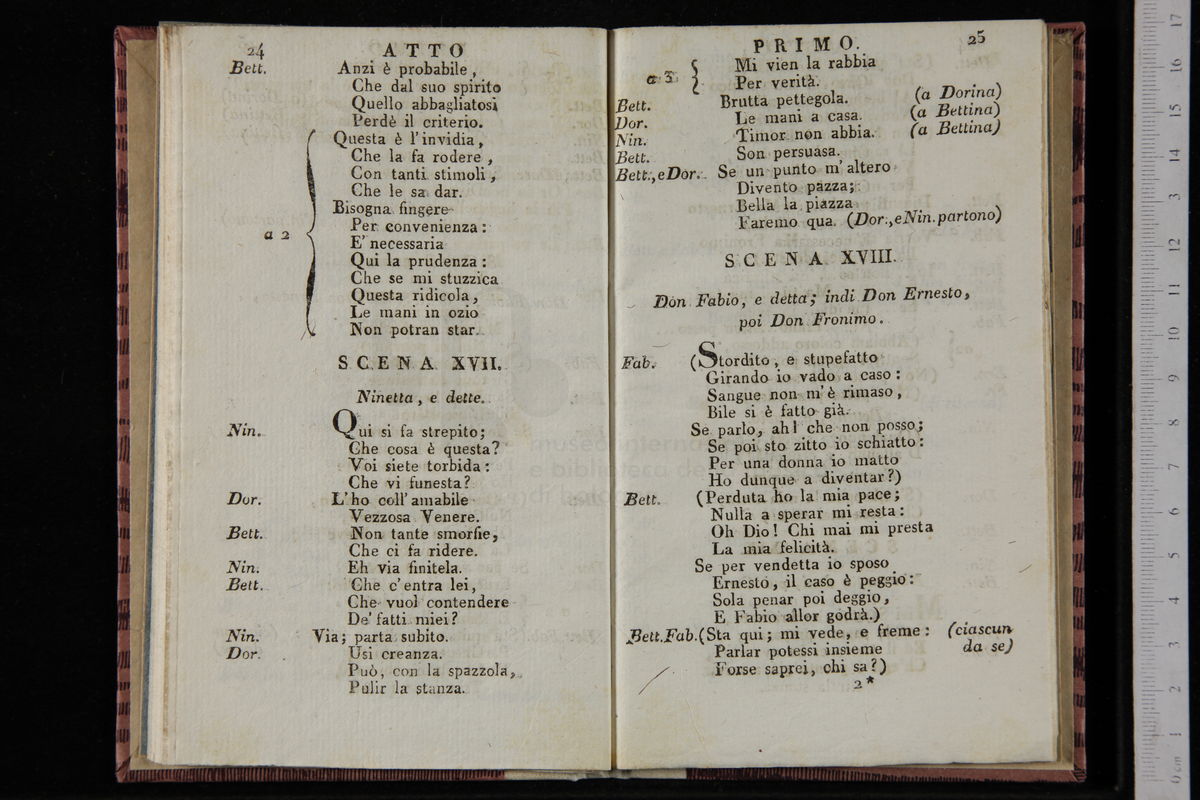 24
ATTO
Bett. Anzi è probabile,
Che dal suo spirito
Quello abbagliatosi
Perdè il criterio.
Questa è l'invidia,
Che la fa rodere,
Con tanti stimoli,
Che le sa dar.
Bisogna fingere
Per convenienza:
a 2
E' necessaria
Qui la prudenza:
Che se mi stuzzica
Questa ridicola,
Le mani in ozio
Non potran star.
SCENA XVII.
Ninetta, e dette.
Nin. Qui si fa strepito;
Che cosa è questa?
Voi siete torbida:
Che vi funesta?
Dor. L'ho coll'amabile
Vezzosa Venere.
Bett. Non tante smorfie,
Che ci fa ridere.
Nin. Eh via finitela.
Bett. Che c'entra lei,
Che vuol contendere
De' fatti miei?
Nin. Via; parta subito.
Dor. Usi creanza.
Può, con la spazzola,
Pulir la stanza.
PRIMO.
25
a 3. Mi vien la rabbia
Per verità.
Bett. Brutta pettegola. (a Dorina)
Dor. Le mani a casa. (a Bettina)
Nin. Timor non abbia. (a Bettina)
Bett. Son persuasa.
Bett., e Dor. Se un punto m'altero
Divento pazza;
Bella la piazza
Faremo qua. (Dor., e Nin. partono)
SCENA XVIII.
Don Fabio, e detta; indi Don Ernesto,
poi Don Fronimo.
Fab. (Stordito, e stupefatto
Girando io vado a caso:
Sangue non m'è rimaso,
Bile si è fatto già.
Se parlo, ah! che non posso;
Se poi sto zitto io schiatto:
Per una donna io matto
Ho dunque a diventar?)
Bett. (Perduta ho la mia pace;
Nulla a sperar mi resta:
Oh Dio! Chi mai mi presta
La mia felicità.
Se per vendetta io sposo
Ernesto, il caso è peggio:
Sola penar poi deggio,
E Fabio allor godrà.)
Bett. Fab. (Sta qui; mi vede, e freme: (ciascun
Parlar potessi insieme da se)
Forse saprei, chi sa?)
2*